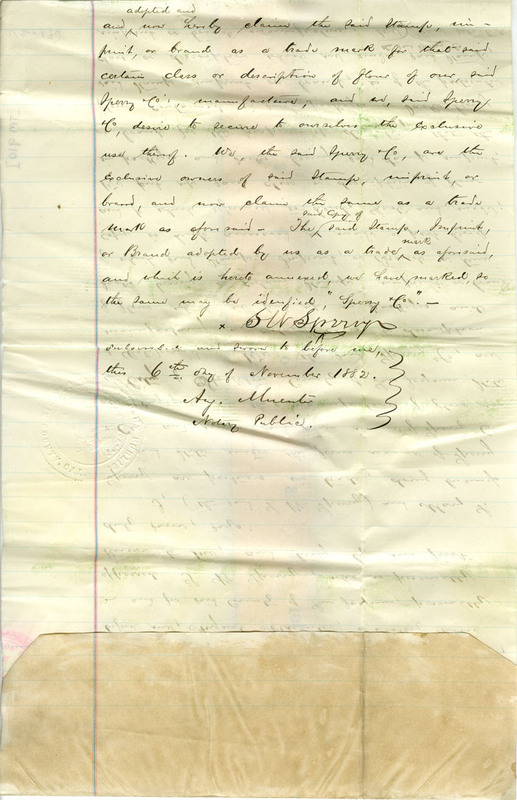 adopted and
and now hereby claim the said Stamp, im-
print, or brand as a trade mark for that said
certain class or description of flour of our, said
Sperry & Co's, manufacture, and so, said Sperry
& Co, desire to secure to ourselves the exclusive
use thereof. We, the said Sperry & Co, are the
exclusive owners of said Stamp, imprint, or
brand, and now claim the same as a trade
mark as aforesaid - The said copy of said Stamp, Imprint,
or Brand adopted by us as a trade mark as aforesaid,
and which is hereto annexed, we have marked, so
the same may be identified "Sperry & Co". -
x S W Sperry
Subscribed and sworn to before me,
this 6th day of November 1882.
Ag. Muenter
Notary Public.